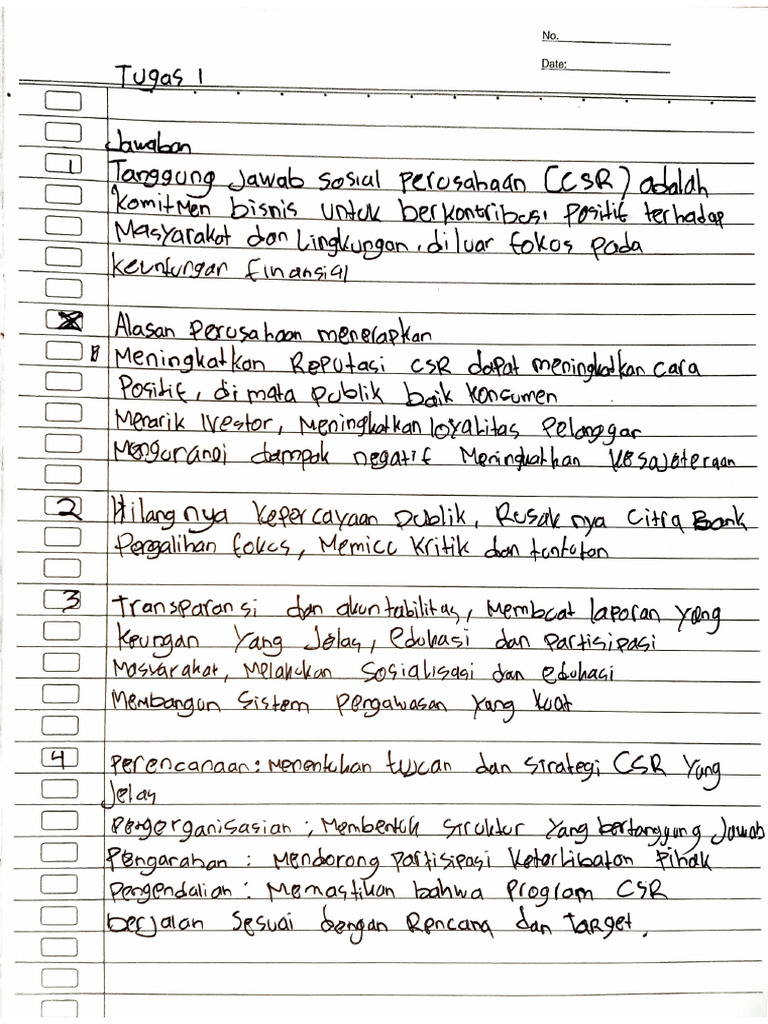 No.
Date:
Tugas 1
Jawaban
1 Tanggung Jawab sosial perusahaan (CSR) adalah
komitmen bisnis untuk berkontribusi positif terhadap
Masyarakat dan Lingkungan, diluar fokos pada
keuntungan finansial
Alasan perusahaan menerapkan
Meningkatkan Reputasi CSR dapat meningkatkan cara
Positif, di mata publik baik konsumen
Menarik Ivestor, Meningkatkan loyalitas Pelanggar
Mengurangi dampak negatif Meningkatkan kesajeteraan
2 Hilangnya kepercayaan publik, Rusaknya Citra Bank
Pengalihan fokus, Memicu kritik dan tuntutan
3 Transparansi dan akuntabilitas, Membuat laporan yang
keungan yang jelas, edukasi dan partisipasi
Masyarakat, Melakukan Sosialisasi dan edukasi
Membangun sistem pengawasan yang kuat
4 perencanaan: Menentukan tucan dan strategi CSR yang
jelas
Pengorganisasian; Membentuk struktur yang bertanggung jawab
Pengarahan : Mendorong partisipasi keterlibatan pihak
Pengendalian: Memastikan bahwa program CSR
berjalan sesuai dengan Rencana dan Target.